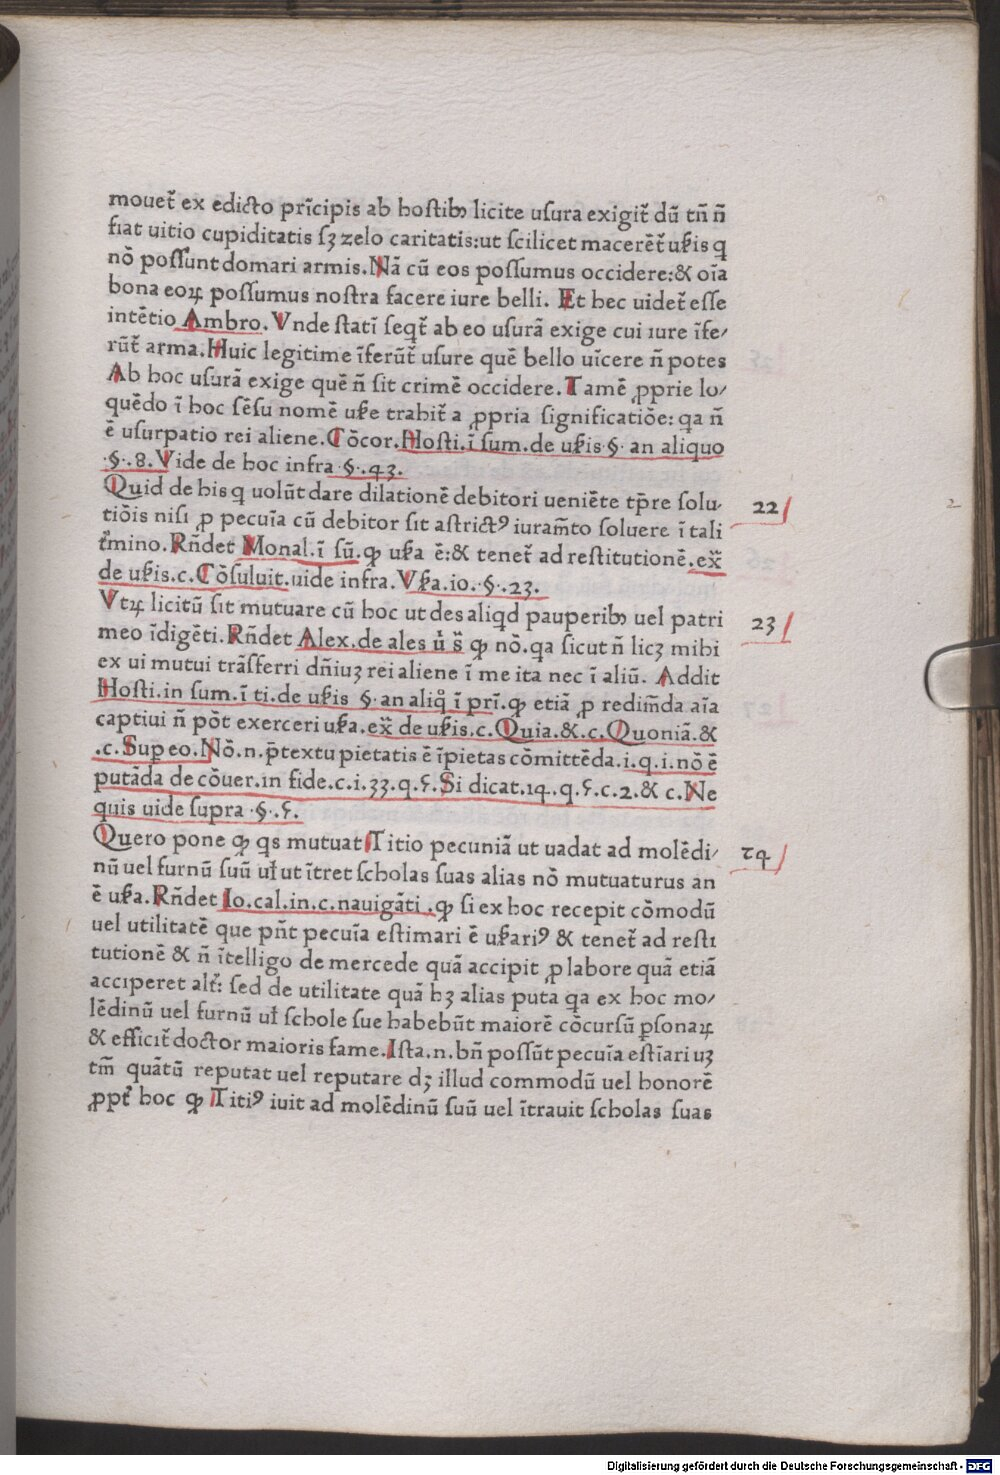 mouet̃ ex edicto prĩcipis ab hostibꝰ licite usura exigit̃ dũ tñ ñ
fiat uitio cupiditatis sꝫ zelo caritatis:ut scilicet macerẽt̃ uꝶis q
nõ possunt domari armis.Nã cũ eos possumus occidere:& oĩa
bona eoꝝ possumus nostra facere iure belli. Et hec uidet̃ esse
intẽtio Ambro.Vnde statĩ seqt̃ ab eo usurã exige cui iure ĩfe/
rũt̃ arma.Huic legitime ĩferũt̃ usure quẽ bello uĩcere ñ potes
Ab hoc usurã exige quẽ ñ sit crimẽ occidere.Tamẽ ꝓprie lo/
quẽdo ĩ hoc sẽsu nomẽ uꝶe trahit̃ a ꝓpria significatiõe: qa ñ
ẽ usurpatio rei aliene.Cõcor.Hosti.ĩ sum.de uꝶis § an aliquo
.§.8.Vide de hoc infra.§.43.
Quid de his q uolũt dare dilationẽ debitori ueniẽte tp̃re solu/
tiõis nisi ꝓ pecuĩa cũ debitor sit astrictꝰ iuram̃to soluere ĩ tali
t̃mino.Rñdet Monal.ĩ sũ.ꝙ uꝶa ẽ:& tenet̃ ad restitutionẽ.ex̃
de uꝶis.c.Cõsuluit.uide infra.Vꝶa.io.§.23.
22
Vtꝝ licitũ sit mutuare cũ hoc ut des aliqd pauperibꝰ uel patri
meo ĩdigẽti.Rñdet Alex.de ales ũ s̃ ꝙ nõ.qa sicut ñ licꝫ mihi
ex ui mutui trãsferri dñiuꝫ rei aliene ĩ me ita nec ĩ aliũ. Addit
Hosti.in sum.ĩ ti.de uꝶis § an aliq̃ ĩ prĩ.ꝙ etiã ꝓ redim̃da aĩa
captiui ñ põt exerceri uꝶa.ex̃ de uꝶis.c.Quia.&.c.Quoniã.&
.c.Suꝑ eo.Nõ.n.p̃textu pietatis ẽ ĩpietas cõmittẽda.i.q.i.nõ ẽ
putãda de cõuer.in fide.c.i.33.q.5.Si dicat.14.q.5.c.2.& c.Ne
quis uide supra.§.5.
23
Quero pone ꝙ qs mutuat Titio pecuniã ut uadat ad molẽdi/
nũ uel furnũ suũ ul̃ ut ĩtret scholas suas alias nõ mutuaturus an
ẽ uꝶa.Rñdet Io.cal.in.c.nauigãti.ꝙ si ex hoc recepit cõmodũ
uel utilitatẽ que pñt pecuĩa estimari ẽ uꝶariꝰ & tenet̃ ad resti
tutionẽ & ñ ĩtelligo de mercede quã accipit ꝓ labore quã etiã
acciperet alt̃: sed de utilitate quã hꝫ alias puta qa ex hoc mo/
lẽdinũ uel furnũ ul̃ schole sue habebũt maiorẽ cõcursũ ꝑsonaꝝ
& efficit̃ doctor maioris fame.Ista.n.bñ possũt pecuĩa estĩari uꝫ
tm̃ quãtũ reputat uel reputare dꝫ illud commodũ uel honorẽ
ꝓpt̃ hoc ꝙ Titiꝰ iuit ad molẽdinũ suũ uel ĩtrauit scholas suas
24
2
Digitalisierung gefördert durch die Deutsche Forschungsgemeinschaft - DFG